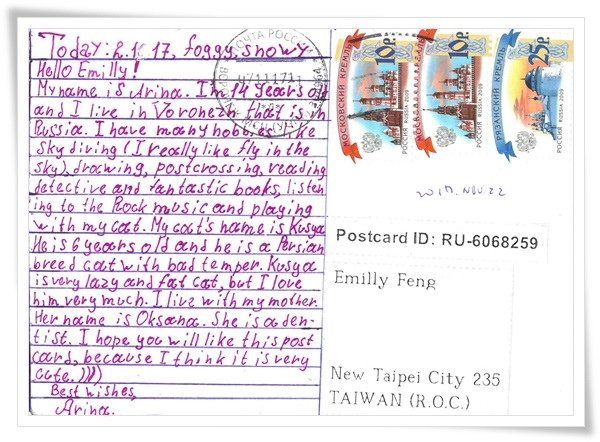 Today: 2.11.17, foggy, snowy
Hello Emilly!
My name is Arina. I'm 14 years old
and I live in Voronezh that is in
Russia. I have many hobbies like
sky diving (I really like fly in the
sky), drawing, postcrossing, reading
detective and fantastic books, listen
ing to the Rock music and playing
with my cat. My cat's name is Kusya
He is 6 years old and he is a Persian
breed cat with bad temper. Kusya
is very lazy and fat cat, but I love
him very much. I live with my mother.
Her name is Oksana. She is a den-
tist. I hope you will like this post
card, because I think it is very
cute.)))
Best wishes,
Arina.
ПОЧТА РОССИИ
МОСКОВСКИЙ КРЕМЛЬ
10р.
РОССИЯ RUSSIA 2009
МОСКОВСКИЙ КРЕМЛЬ
10р.
РОССИЯ RUSSIA 2009
РЯЗАНСКИЙ КРЕМЛЬ
25р.
РОССИЯ RUSSIA 2009
2017. NOV. 22
Postcard ID: RU-6068259
Emilly Feng
New Taipei City 235
TAIWAN (R.O.C.)